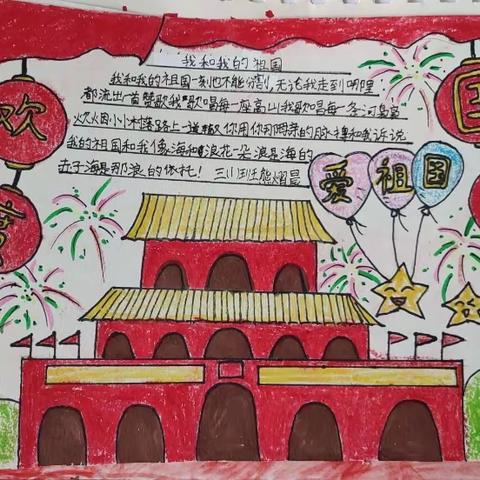 我和我的祖国
我和我的祖国一刻也不能分割,无论我走到哪里
都流出一首赞歌我歌唱每一座高山我歌唱每一条河袅袅
炊烟小小村落路上一道辙你用你那母亲的脉搏和我诉说
我的祖国和我像海和浪花一朵浪是海的
赤子海是那浪的依托! 三(1)班熊熠晨
欢
度
国
爱祖国